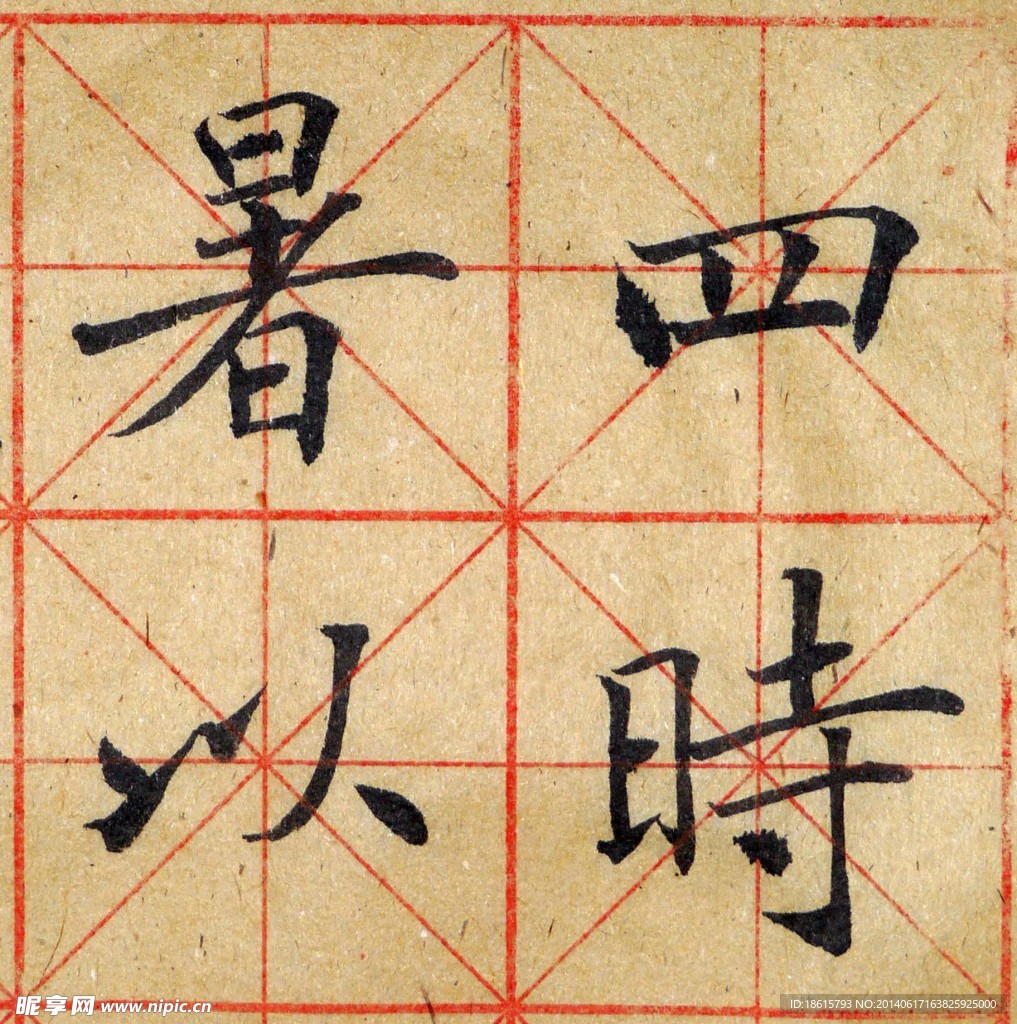 四時
暑以
昵享网 www.nipic.cn
ID:18615793 NO:20140617163825925000